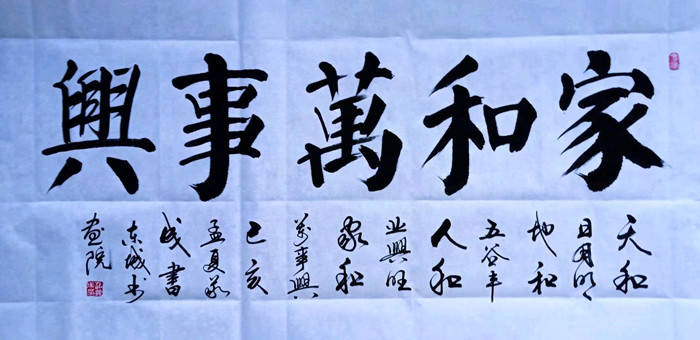 家和萬事興
天和
日月明
地和
五谷丰
人和
业興旺
家和
萬事興
己亥
孟夏
书
东城书
画院